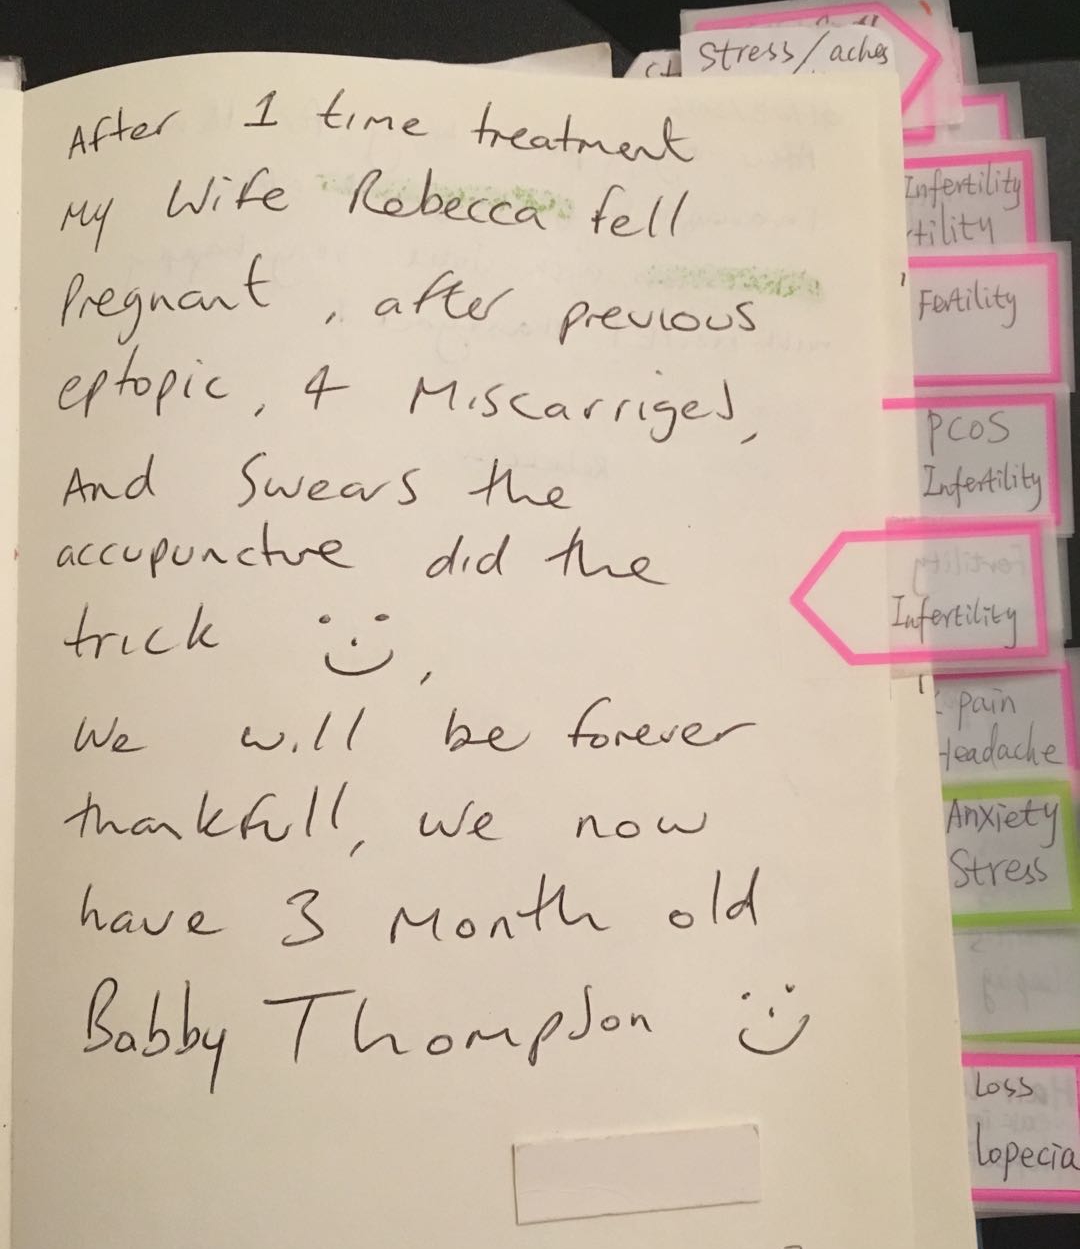 After 1 time treatment
My Wife Rebecca fell
Pregnant, after previous
eptopic, 4 Miscarriges,
And Swears the
accupuncture did the
trick
We will be forever
thankfull, we now
have 3 Month old
Babby Thompson
Stress/aches
Infertility
tility
Fertility
PCOS
Infertility
Fertility
Infertility
pain
Headache
Anxiety
Stress
Loss
lopecia